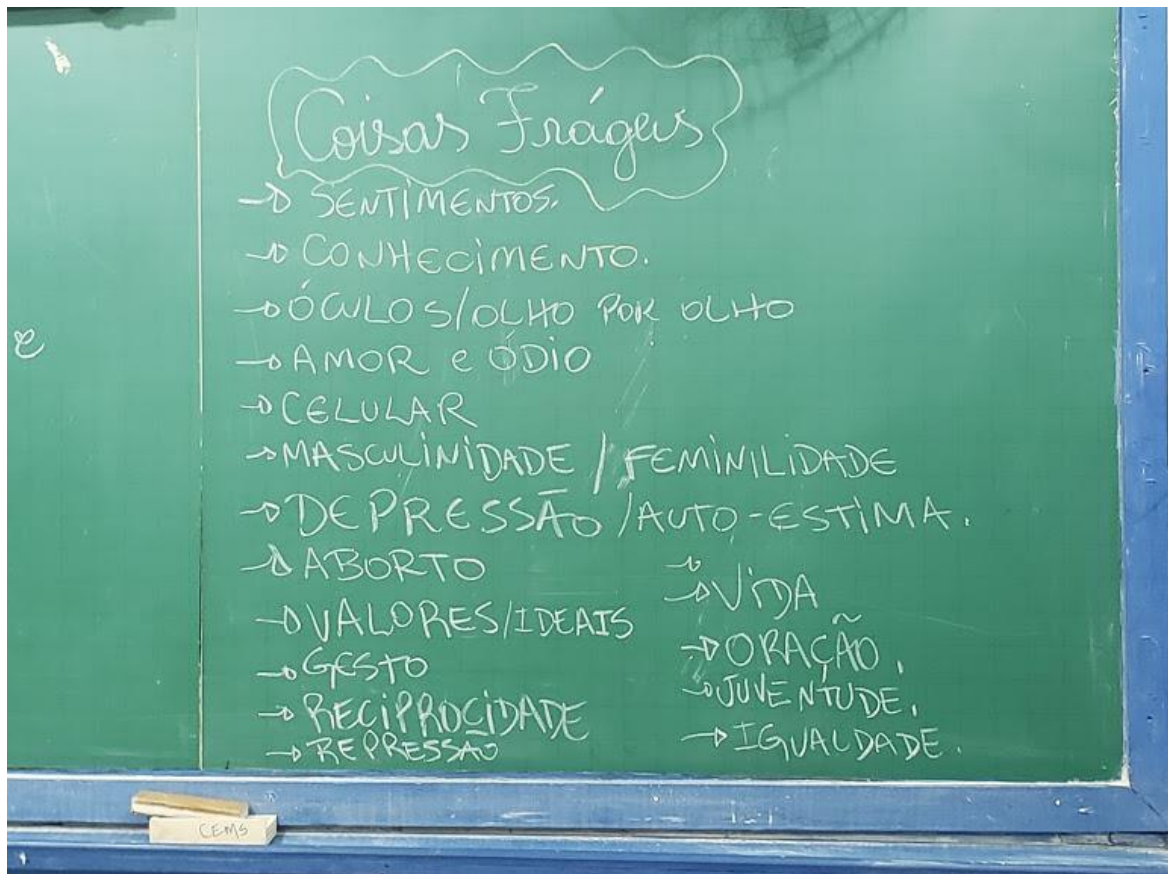 Coisas Frágeis
→ SENTIMENTOS.
→ CONHECIMENTO.
→ ÓCULOS/OLHO POR OLHO
→ AMOR e ÓDIO
→ CELULAR
→ MASCULINIDADE / FEMINILIDADE
→ DEPRESSÃO /AUTO-ESTIMA.
→ ABORTO
→ VALORES/IDEAIS
→ GESTO
→ RECIPROCIDADE
→ REPRESSÃO
→ VIDA
→ ORAÇÃO.
→ JUVENTUDE.
→ IGUALDADE.
CEMS